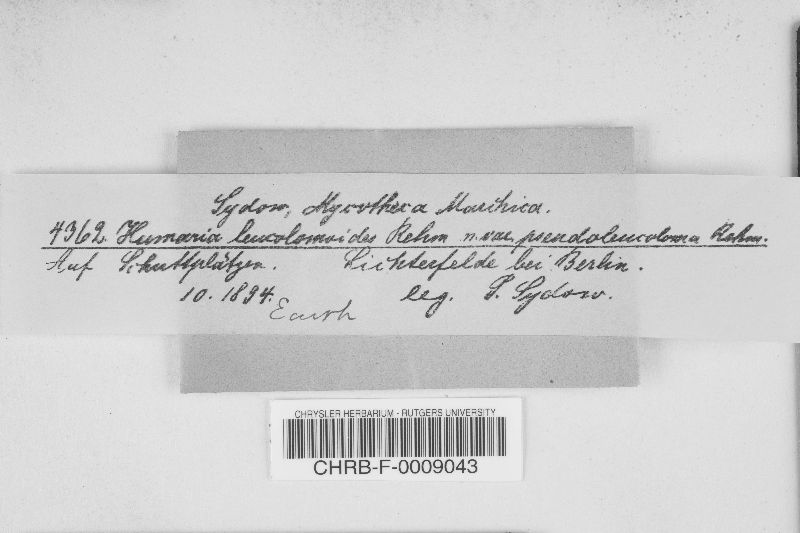 Sydow, Mycotheca Marchica.
4362. Humaria leucolomoides Rehm n. var. pseudoleucoloma Rehm.
Auf Schuttplätzen. Lichterfelde bei Berlin.
10. 1894. leg. P. Sydow.
Earth
CHRYSLER HERBARIUM - RUTGERS UNIVERSITY
CHRB-F-0009043